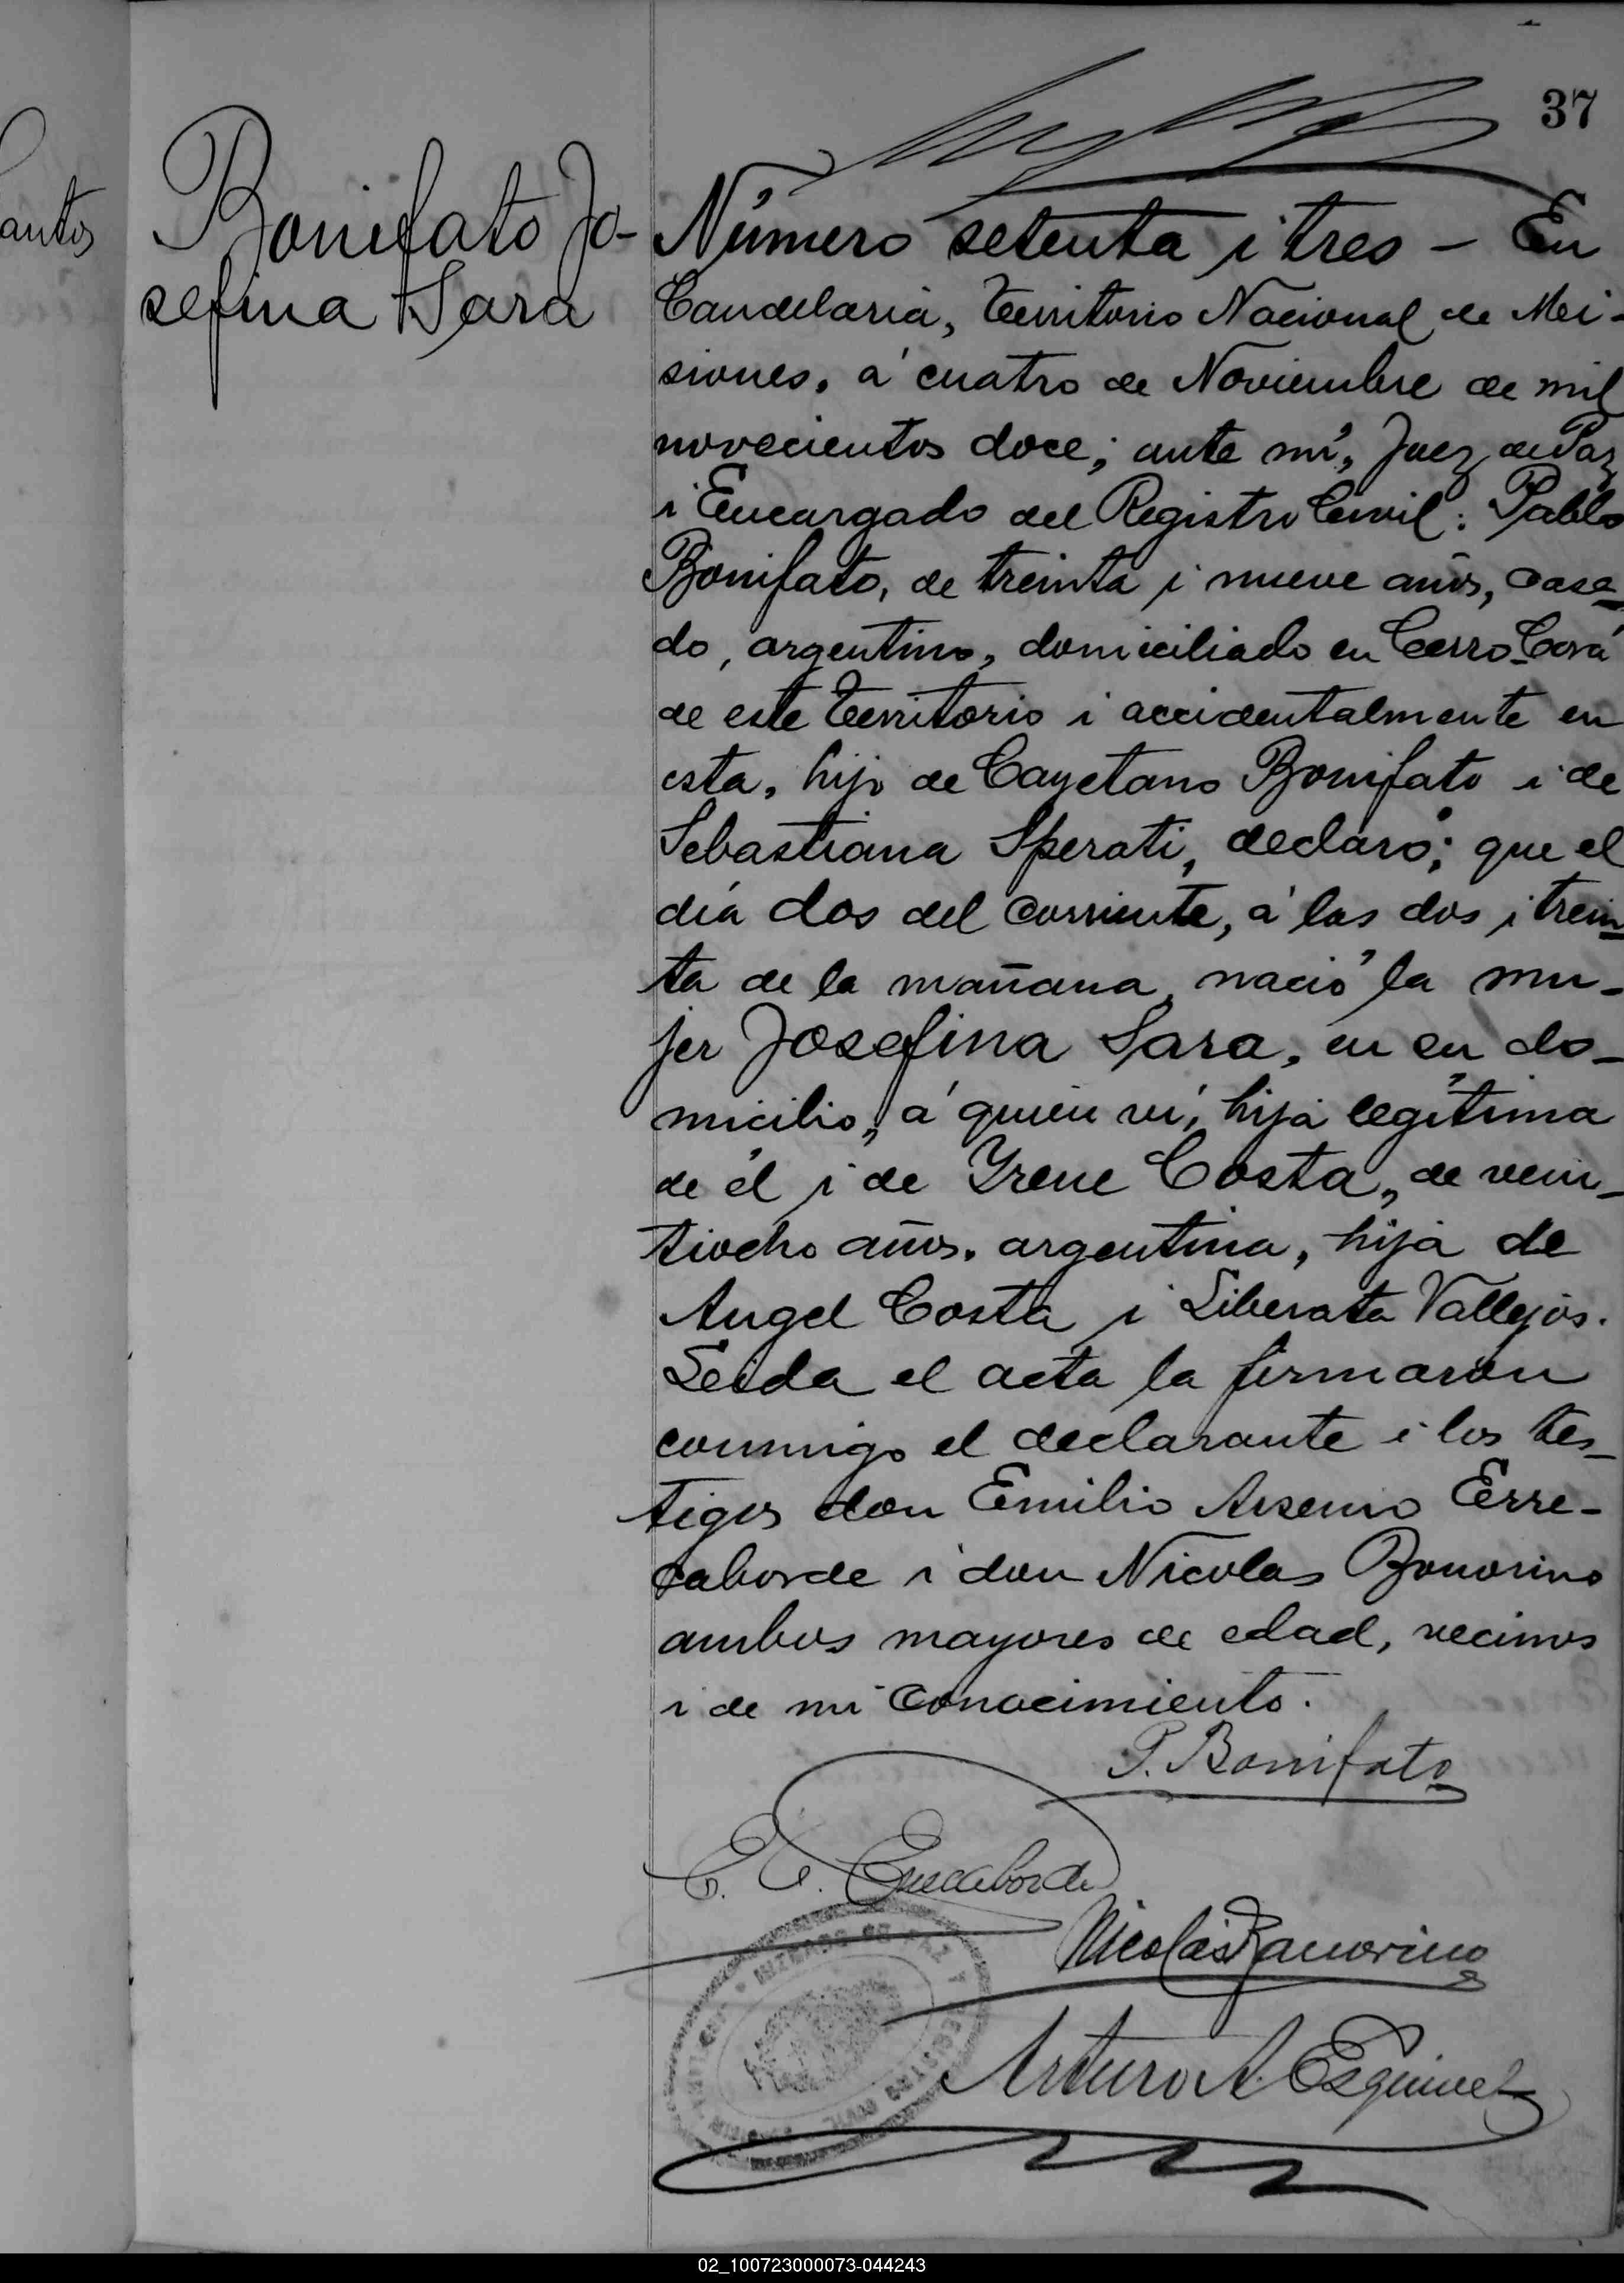 37
antos
Bonifato Jo-
sefina Sara
Número setenta i tres - En
Candelaria, Territorio Nacional de Mi-
siones, á cuatro de Noviembre de mil
novecientos doce; ante mí, Juez de Paz
i Encargado del Registro Civil: Pablo
Bonifato, de treinta i nueve años, casa-
do, argentino, domiciliado en Cerro-Corá
de este Territorio i accidentalmente en
esta, hijo de Cayetano Bonifato i de
Sebastiana Sperati, declaró; que el
día dos del corriente, á las dos i trein-
ta de la mañana, nació la mu-
jer Josefina Sara, en su do-
micilio, á quien ví, hija legítima
de él i de Yrene Costa, de vein-
tiocho años, argentina, hija de
Angel Costa i Liberata Vallejos.
Leida el acta la firmaron
conmigo el declarante i los tes-
tigos don Emilio Arsenio Erre-
caborde i don Nicolas Bonorino
ambos mayores de edad, vecinos
i de mi conocimiento.
P. Bonifato
E. A. Errecaborde
Nicolás Bonorino
JUZGADO DE PAZ Y
REGISTRO CIVIL
Arturo A. Esquivel
02_100723000073-044243